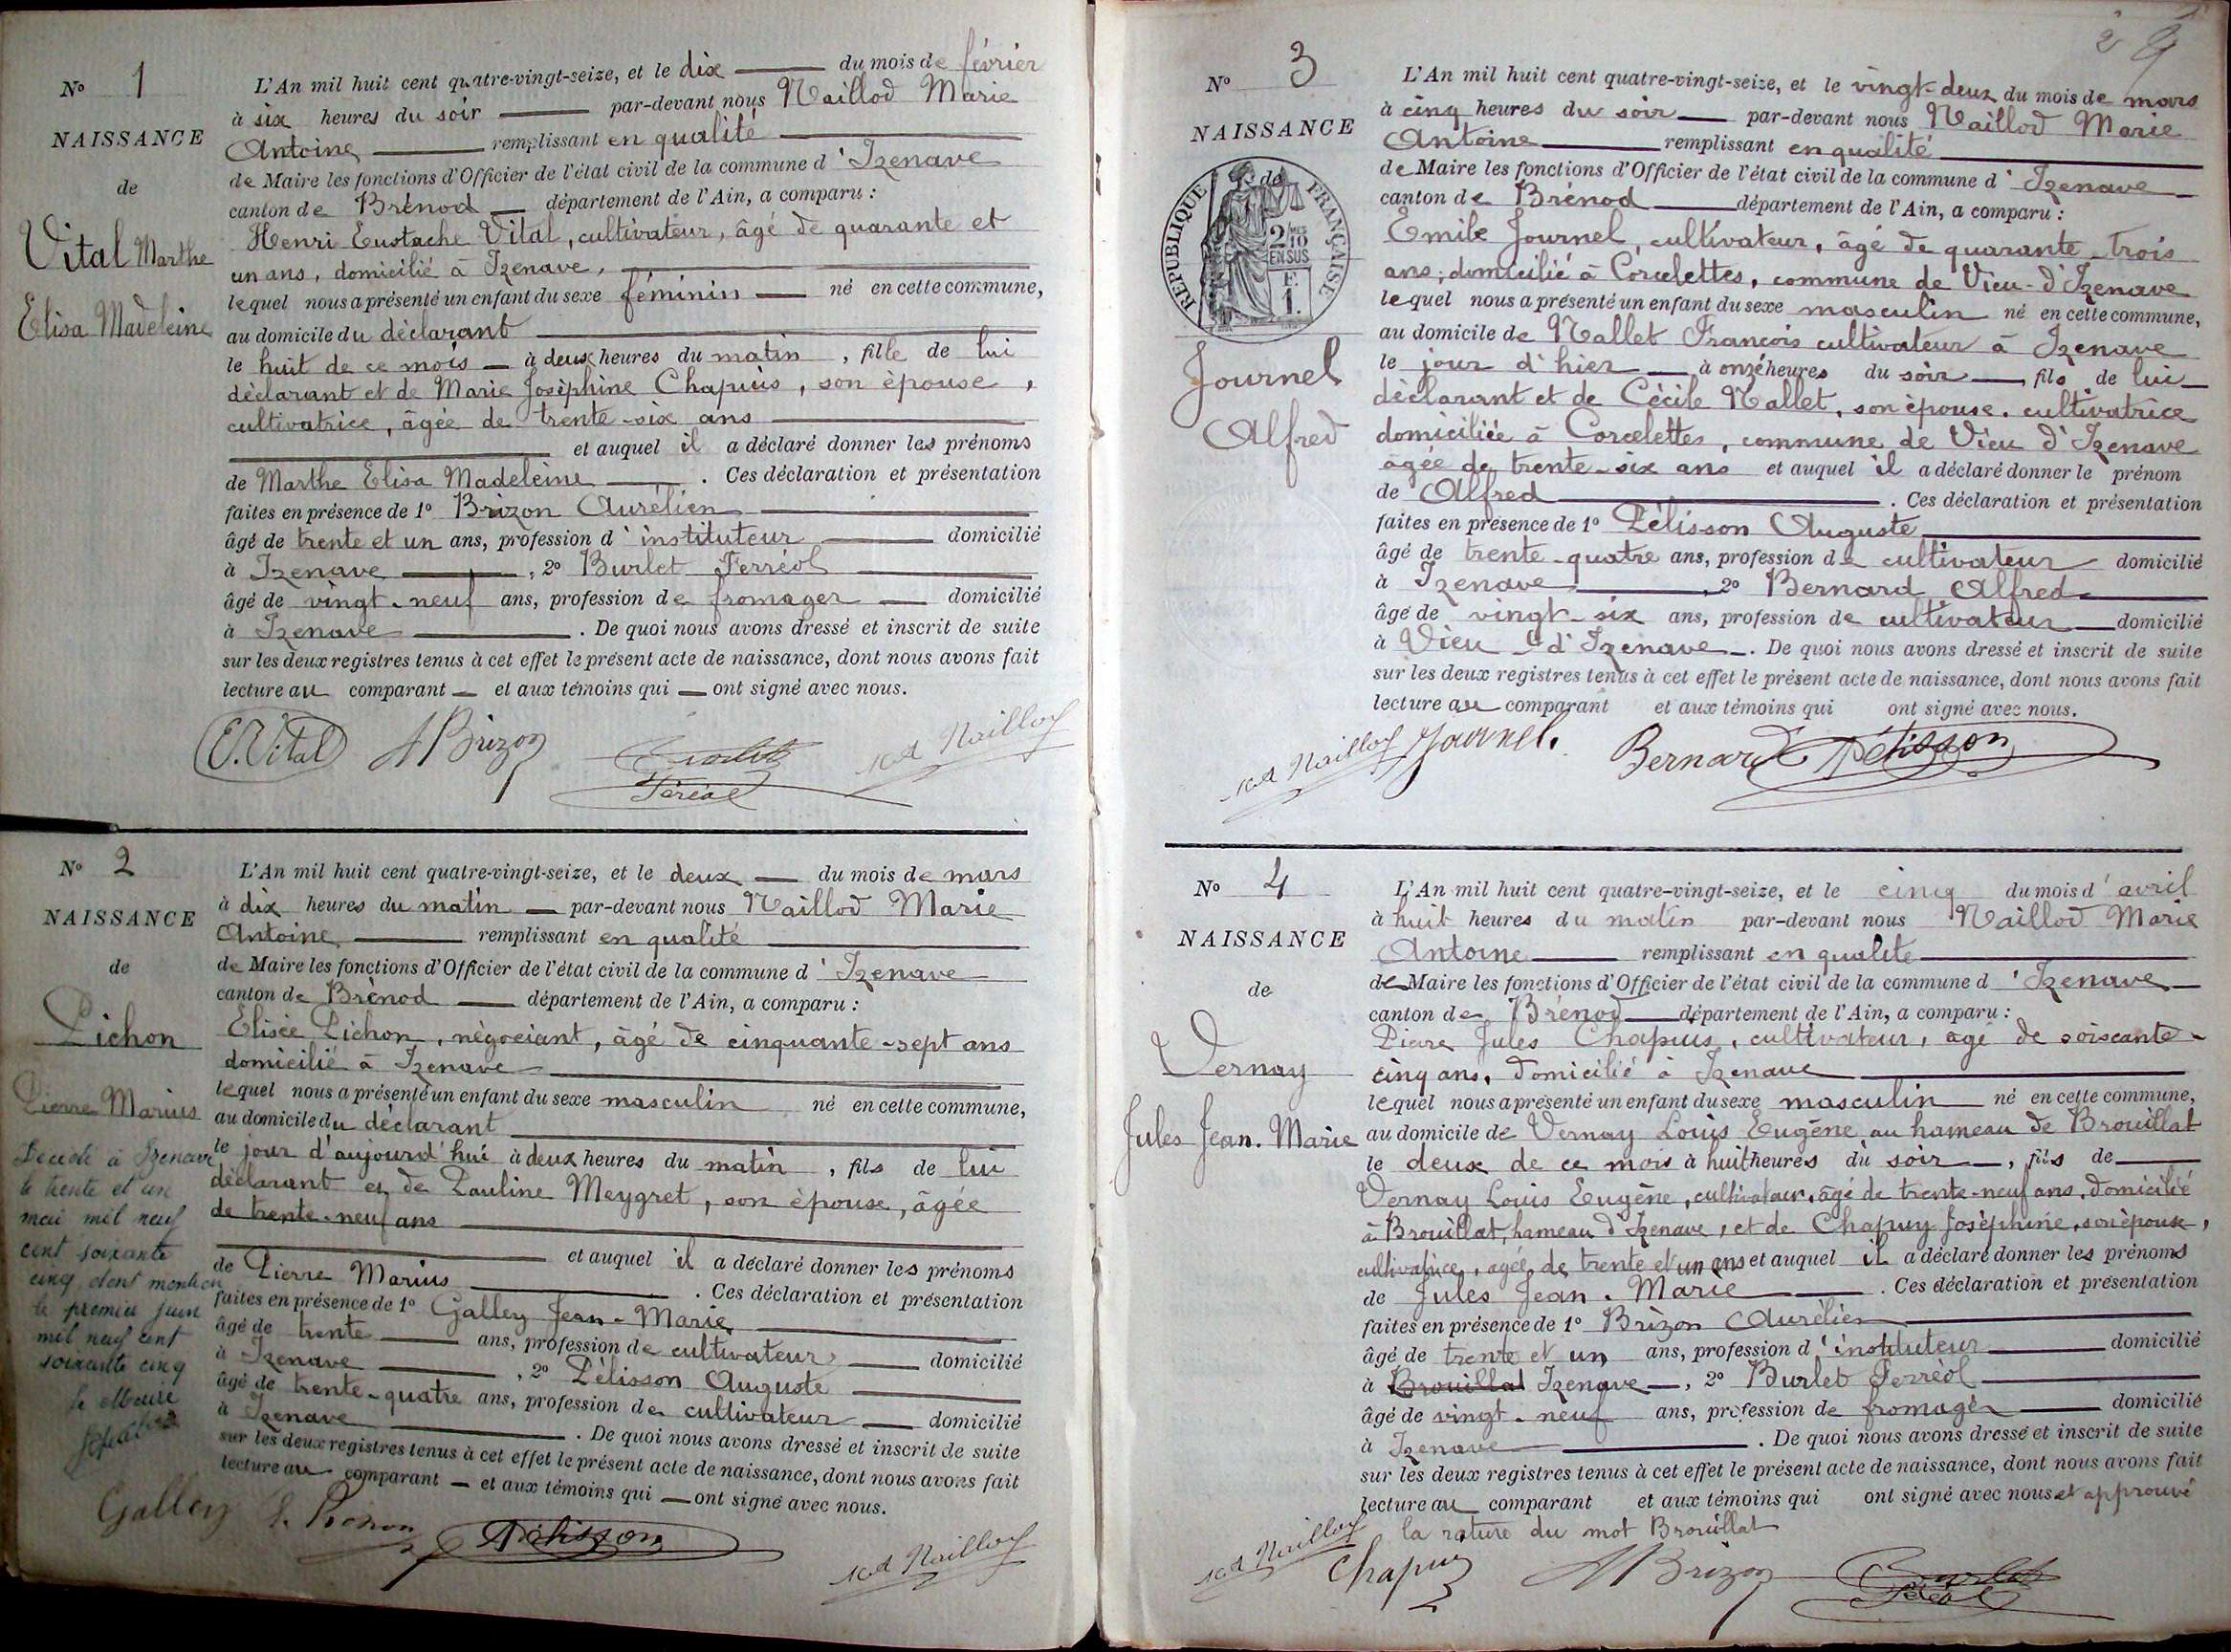 Nº 1
NAISSANCE
de
Vital Marthe
Elisa Madeleine
L'An mil huit cent quatre-vingt-seize, et le dix du mois de février
à six heures du soir par-devant nous Naillod Marie
Antoine remplissant en qualité
de Maire les fonctions d'Officier de l'état civil de la commune d'Izenave
canton de Brénod département de l'Ain, a comparu :
Henri Eustache Vital, cultivateur, âgé de quarante et
un ans, domicilié à Izenave,
lequel nous a présenté un enfant du sexe féminin né en cette commune,
au domicile du déclarant
le huit de ce mois à deux heures du matin, fille de lui
déclarant et de Marie Joséphine Chapuis, son épouse,
cultivatrice, âgée de trente-six ans
et auquel il a déclaré donner les prénoms
de Marthe Elisa Madeleine . Ces déclaration et présentation
faites en présence de 1º Brizon Aurélien
âgé de trente et un ans, profession d'instituteur domicilié
à Izenave , 2º Burlet Ferréol
âgé de vingt-neuf ans, profession de fromager domicilié
à Izenave . De quoi nous avons dressé et inscrit de suite
sur les deux registres tenus à cet effet le présent acte de naissance, dont nous avons fait
lecture au comparant et aux témoins qui ont signé avec nous.
E. Vital A Brizon Burlet Féréol M A Naillod
Nº 2
NAISSANCE
de
Pichon
Pierre Marius
Décédé à Izenave
le trente et un
mai mil neuf
cent soixante
cinq dont mention
le premier juin
mil neuf cent
soixante cinq
le Maire
L'An mil huit cent quatre-vingt-seize, et le deux du mois de mars
à dix heures du matin par-devant nous Naillod Marie
Antoine remplissant en qualité
de Maire les fonctions d'Officier de l'état civil de la commune d'Izenave
canton de Brénod département de l'Ain, a comparu :
Elisée Pichon, négociant, âgé de cinquante-sept ans
domicilié à Izenave
lequel nous a présenté un enfant du sexe masculin né en cette commune,
au domicile du déclarant
le jour d'aujourd'hui à deux heures du matin, fils de lui
déclarant et de Pauline Meygret, son épouse, âgée
de trente-neuf ans
et auquel il a déclaré donner les prénoms
de Pierre Marius . Ces déclaration et présentation
faites en présence de 1º Galley Jean-Marie
âgé de trente ans, profession de cultivateur domicilié
à Izenave , 2º Pélisson Auguste
âgé de trente-quatre ans, profession de cultivateur domicilié
à Izenave . De quoi nous avons dressé et inscrit de suite
sur les deux registres tenus à cet effet le présent acte de naissance, dont nous avons fait
lecture au comparant et aux témoins qui ont signé avec nous.
Galley E. Pichon A Pélisson M A Naillod
2
Nº 3
NAISSANCE
de
RÉPUBLIQUE FRANÇAISE
2/10 EN SUS
F.
1.
Journel
Alfred
L'An mil huit cent quatre-vingt-seize, et le vingt-deux du mois de mars
à cinq heures du soir par-devant nous Naillod Marie
Antoine remplissant en qualité
de Maire les fonctions d'Officier de l'état civil de la commune d'Izenave
canton de Brénod département de l'Ain, a comparu :
Emile Journel, cultivateur, âgé de quarante-trois
ans, domicilié à Corcelettes, commune de Vieu-d'Izenave
lequel nous a présenté un enfant du sexe masculin né en cette commune,
au domicile de Nallet François cultivateur à Izenave
le jour d'hier à onze heures du soir, fils de lui
déclarant et de Cécile Nallet, son épouse, cultivatrice
domiciliée à Corcelettes, commune de Vieu d'Izenave
âgée de trente-six ans et auquel il a déclaré donner le prénom
de Alfred . Ces déclaration et présentation
faites en présence de 1º Pélisson Auguste
âgé de trente-quatre ans, profession de cultivateur domicilié
à Izenave , 2º Bernard Alfred
âgé de vingt-six ans, profession de cultivateur domicilié
à Vieu-d'Izenave . De quoi nous avons dressé et inscrit de suite
sur les deux registres tenus à cet effet le présent acte de naissance, dont nous avons fait
lecture au comparant et aux témoins qui ont signé avec nous.
M A Naillod Journel. Bernard A Pélisson
Nº 4
NAISSANCE
de
Vernay
Jules Jean-Marie
L'An mil huit cent quatre-vingt-seize, et le cinq du mois d'avril
à huit heures du matin par-devant nous Naillod Marie
Antoine remplissant en qualité
de Maire les fonctions d'Officier de l'état civil de la commune d'Izenave
canton de Brénod département de l'Ain, a comparu :
Pierre Jules Chapuis, cultivateur, âgé de soixante-
cinq ans, domicilié à Izenave
lequel nous a présenté un enfant du sexe masculin né en cette commune,
au domicile de Vernay Louis Eugène au hameau de Brouillat
le deux de ce mois à huit heures du soir, fils de
Vernay Louis Eugène, cultivateur, âgé de trente-neuf ans, domicilié
à Brouillat, hameau d'Izenave, et de Chapuy Joséphine, son épouse,
cultivatrice, âgée de trente et un ans et auquel il a déclaré donner les prénoms
de Jules Jean-Marie . Ces déclaration et présentation
faites en présence de 1º Brizon Aurélien
âgé de trente et un ans, profession d'instituteur domicilié
à Brouillat Izenave , 2º Burlet Ferréol
âgé de vingt-neuf ans, profession de fromager domicilié
à Izenave . De quoi nous avons dressé et inscrit de suite
sur les deux registres tenus à cet effet le présent acte de naissance, dont nous avons fait
lecture au comparant et aux témoins qui ont signé avec nous et approuvé
la rature du mot Brouillat
M A Naillod Chapuy A Brizon Burlet Féréol